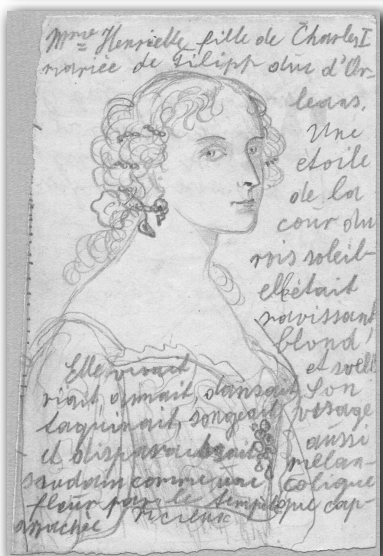 Mme Henriette fille de Charles I
mariée de Filipp duc d'Or-
leans.
Une
étoile
de la
cour du
rois soleil
elle était
ravissant
blond
et svelt
Son
visage
aussi
melan-
colique
que cap-
ricieux
Elle vivait
riait, aimait, dansait,
taquinait, songeait,
et disparaissait
soudain comme une
fleur par le tempête
arrachee